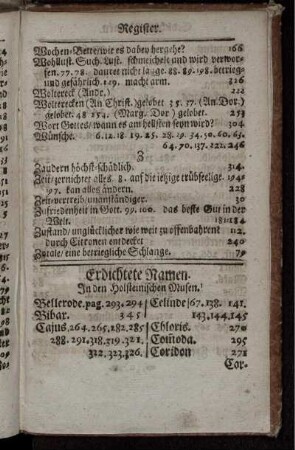 Register.
Wochen-Bette/wie es dabey hergehe? 166
Wohllust. Such. Lust. schmeichelt und wird verwor-
fen. 77.78. dauret nicht lange. 88. 89. 198. betrieg-
und gefährlich. 119. macht arm. 121.
Woltereck (Ande.) 222
Wolterecken (An. Christ.) gelobet 35. 57. (An. Dor.)
gelobet. 48 254. (Marg. Dor.) gelobet. 253
Wort Gottes/ wann es am hellsten seyn wird? 304.
Wünsche. 6. 12. 18. 19. 25. 28. 29. 34. 50. 60. 63.
64. 70. 137. 222. 246
Z
Zaudern höchst-schädlich. 314.
Zeit/zernichtet alles. 8. auf die ietzige trübseelige. 194.
197. kan alles ändern. 228
Zeit-vertreib/unanständiger. 30
Zufriedenheit in Gott. 99. 100. das beste Gut in der
Welt. 181. 184.
Zustand/ unglücklicher wie weit zu offenbahren 112.
durch Citronen entdecket 240
Zypale/ eine betriegliche Schlange. 79
Erdichtete Namen.
In den Holsteinischen Musen.
Bellerode. pag. 293. 294
Bibar. 345
Cajus. 264. 265. 182. 285
288. 291. 318. 319. 321.
322. 323. 326.
Celinde/67. 138. 141.
143. 144. 145
Chloris. 270
Comoda. 295
Coridon 271
Cor-